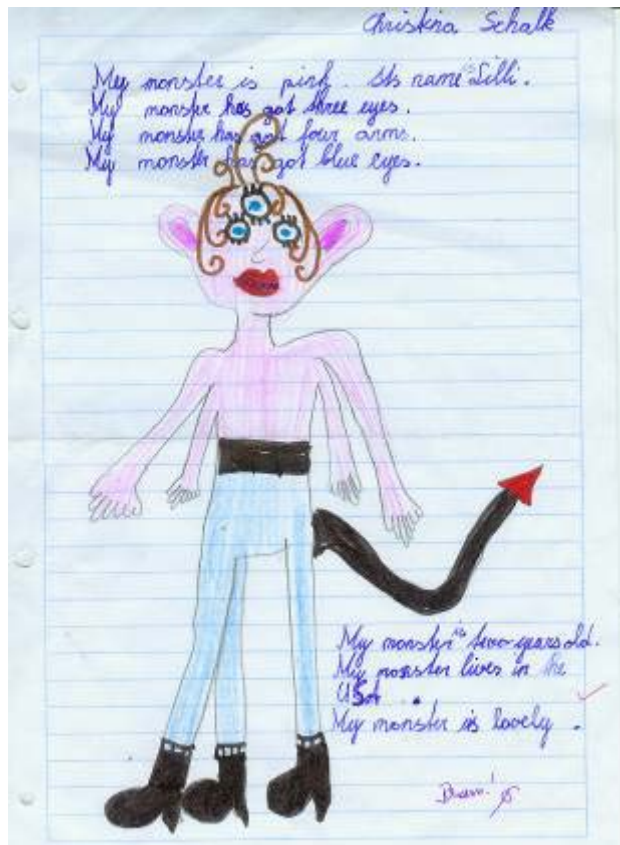 Christina Schalk
My monster is pink. Its name is Lilli.
My monster has got three eyes.
My monster has got four arms.
My monster has got blue eyes.
My monster is two years old.
My monster lives in the
USA.
My monster is lovely.